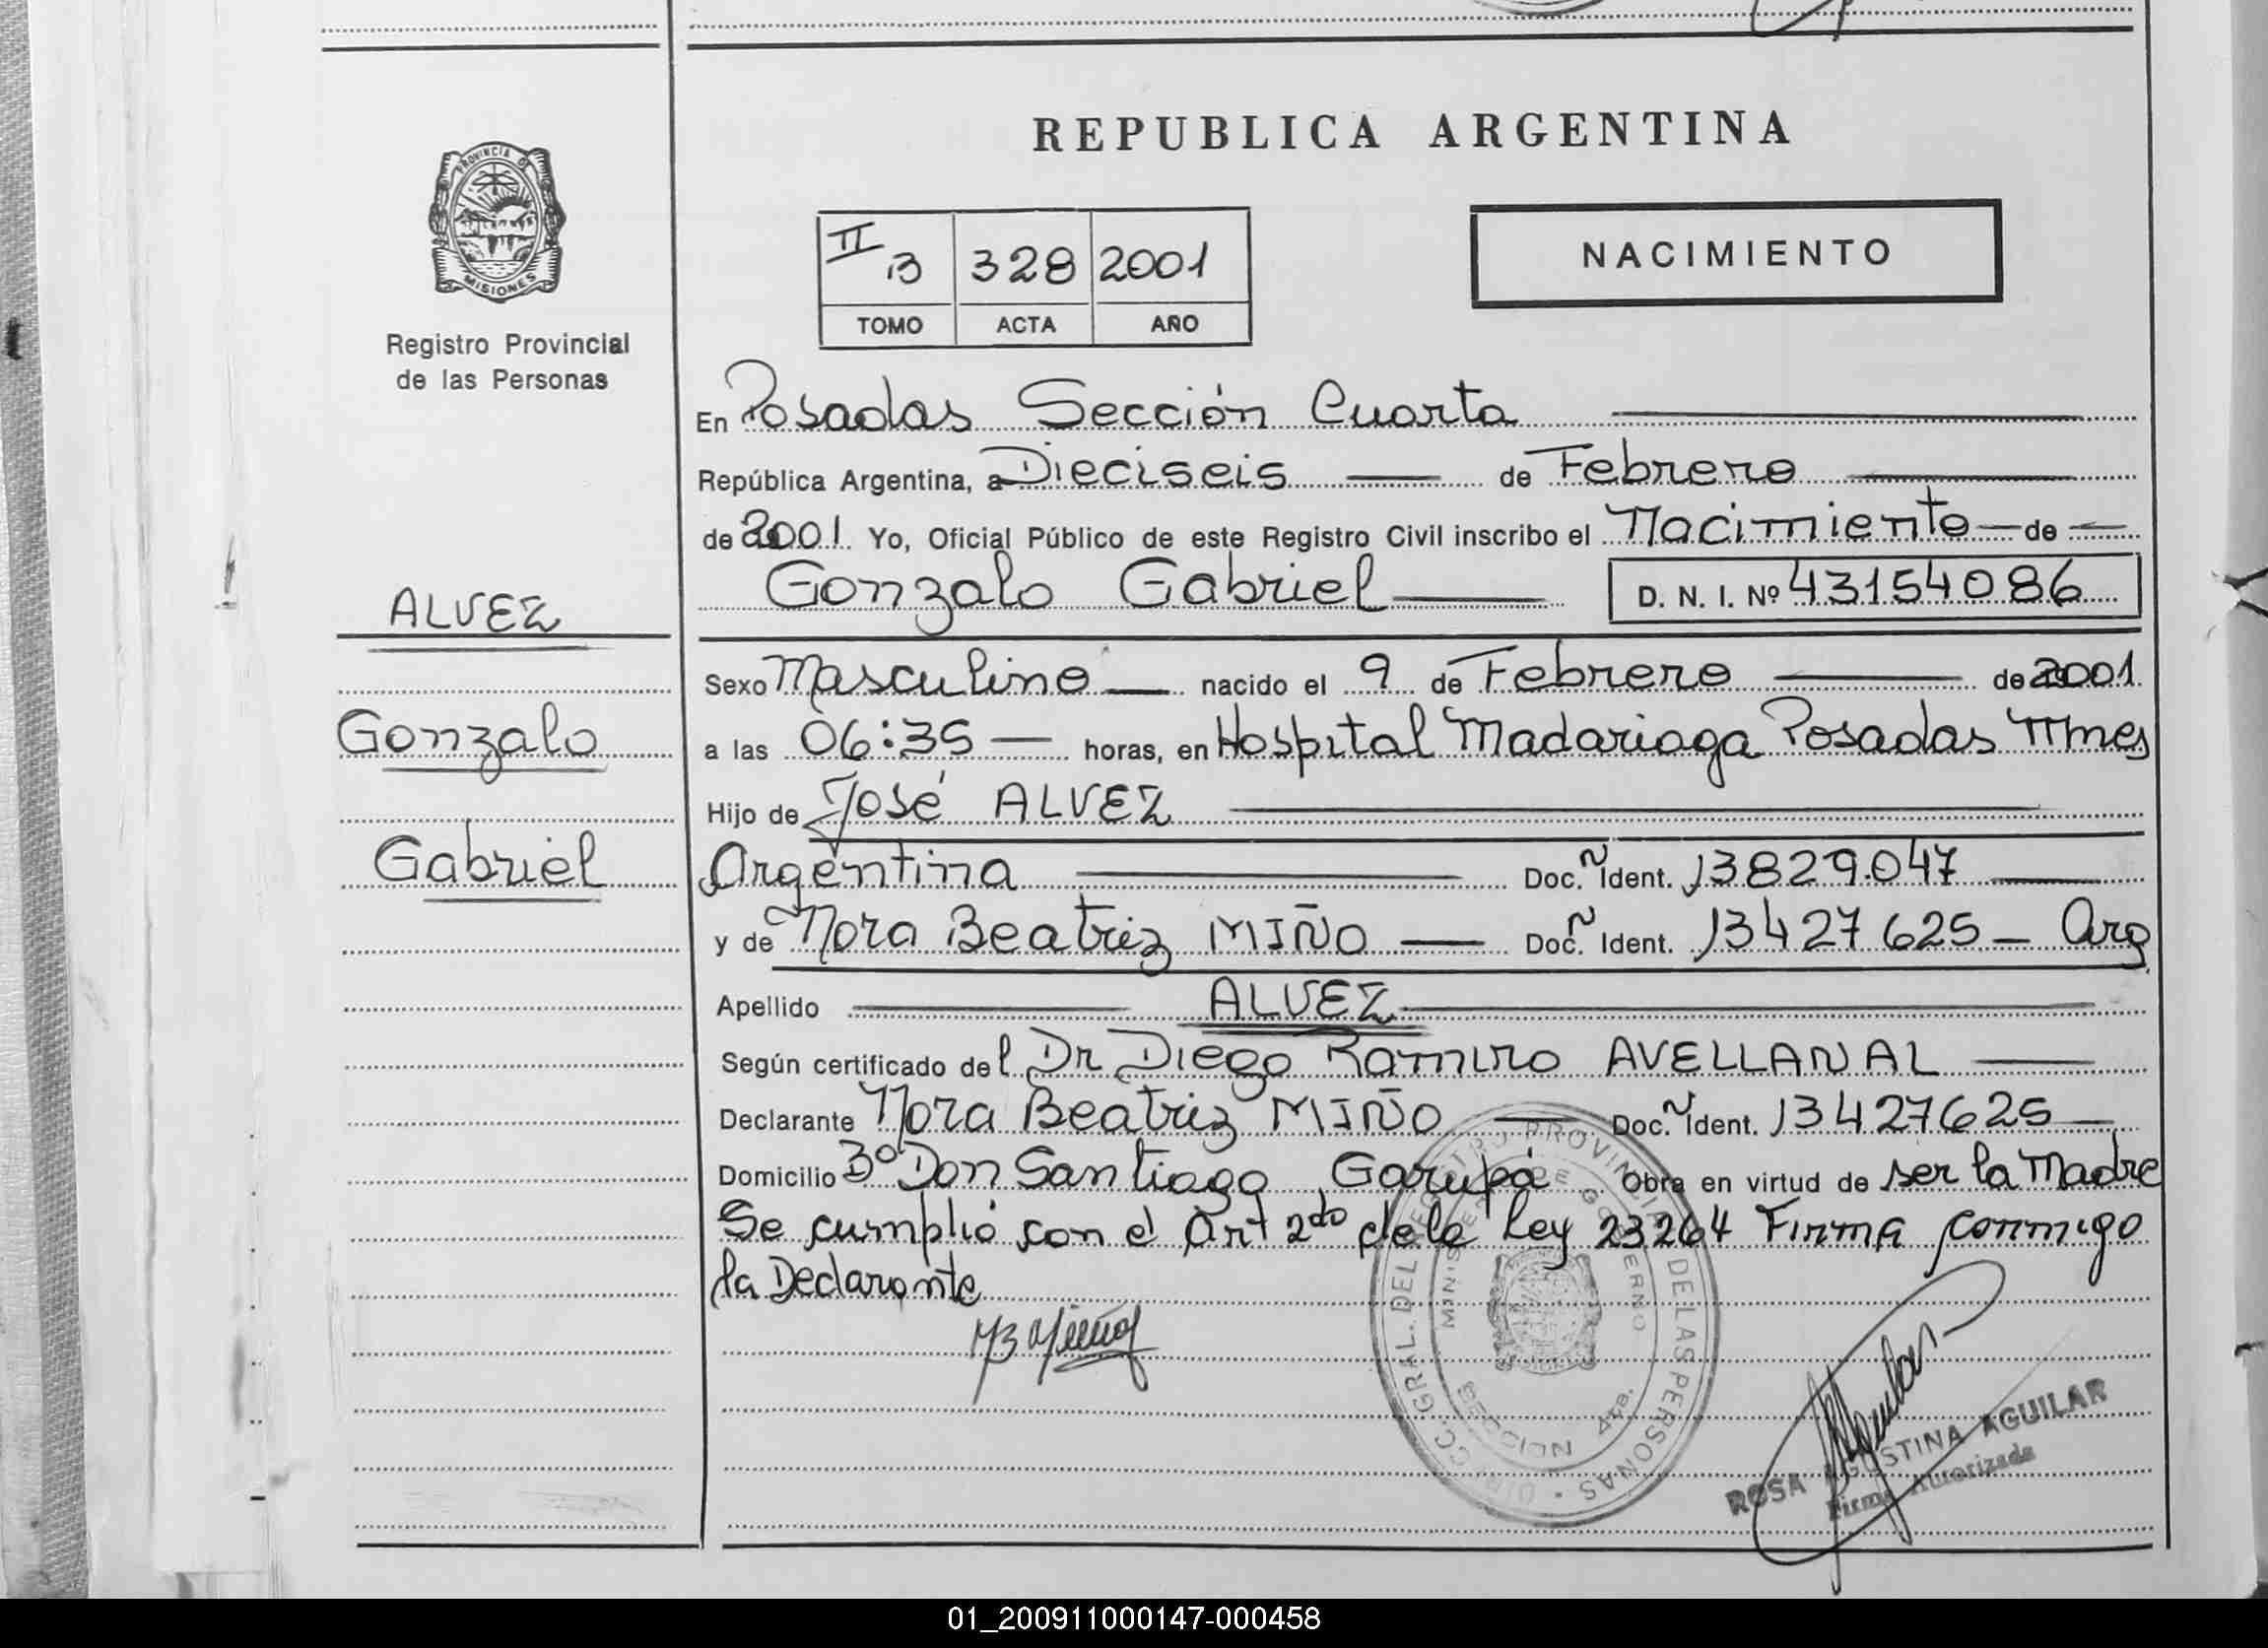 REPUBLICA ARGENTINA
PROVINCIA DE
MISIONES
Registro Provincial
de las Personas
II B 328 2001
TOMO ACTA AÑO
NACIMIENTO
En Posadas Sección Cuarta
República Argentina, a Dieciseis de Febrero
de 2001 Yo, Oficial Público de este Registro Civil inscribo el Nacimiento de
Gonzalo Gabriel D. N. I. Nº 43154086
ALVEZ
Gonzalo
Gabriel
Sexo Masculino nacido el 9 de Febrero de 2001
a las 06:35 horas, en Hospital Madariaga Posadas Mnes
Hijo de José ALVEZ
Argentina Doc. Ident. 13829.047
y de Nora Beatriz MIÑO Doc. Ident. 13427625 Arg
Apellido ALVEZ
Según certificado del Dr Diego Ramiro AVELLANAL
Declarante Nora Beatriz MIÑO Doc. Ident. 13427625
Domicilio Bº Don Santiago Garupá Obra en virtud de ser la Madre
Se cumplió con el Art 2do de la Ley 23264 Firma conmigo
la Declarante
NB Miño
DIRECC. GRAL. DEL REGISTRO PROVINCIAL DE LAS PERSONAS
MINISTERIO DE GOBIERNO
SECCION 4ta.
ROSA AGUSTINA AGUILAR
Firma Autorizada
01_200911000147-000458